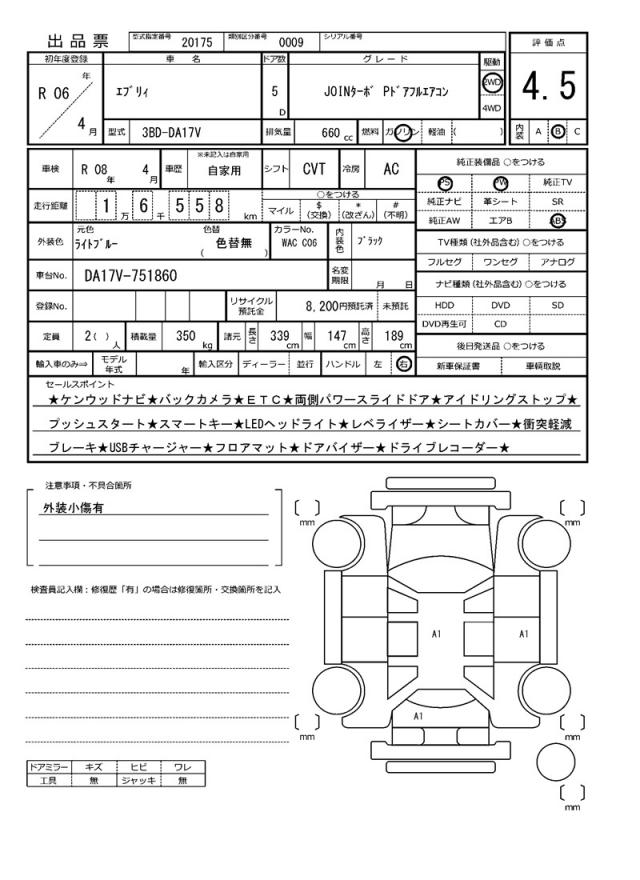 出品票 型式指定番号 20175 類別区分番号 0009 シリアル番号
評価点
4.5
内装 A B C
初年度登録 車名 ドア数 グレード 駆動
R 06 年 4 月
エブリィ 5 D JOINターボ Pドアフルエアコン 2WD 4WD
型式 3BD-DA17V 排気量 660 cc 燃料 ガソリン 軽油 ( )
車検 R 08 年 4 月 車歴 ※未記入は自家用 自家用 シフト CVT 冷房 AC
走行距離 1 万 6 千 5 5 8 km ○をつける
マイル $ (交換) * (改ざん) # (不明)
外装色 元色 ライトブルー 色替 ( 色替無 ) カラーNo. WAC C06 内装色 ブラック
車台No. DA17V-751860 名変期限 月 日
登録No. リサイクル預託金 8,200円預託済 未預託
定員 2( ) 人 積載量 350 kg 諸元 長さ 339 cm 幅 147 cm 高さ 189 cm
輸入車のみ⇒ モデル年式 年 輸入区分 ディーラー 並行 ハンドル 左 右
純正装備品 ○をつける
PS PW 純正TV
純正ナビ 革シート SR
純正AW エアB ABS
TV種類 (社外品含む) ○をつける
フルセグ ワンセグ アナログ
ナビ種類 (社外品含む) ○をつける
HDD DVD SD
DVD再生可 CD
後日発送品 ○をつける
新車保証書 車輌取説
セールスポイント
★ケンウッドナビ★バックカメラ★ＥＴＣ★両側パワースライドドア★アイドリングストップ★
プッシュスタート★スマートキー★LEDヘッドライト★レベライザー★シートカバー★衝突軽減
ブレーキ★USBチャージャー★フロアマット★ドアバイザー★ドライブレコーダー★
注意事項・不具合箇所
外装小傷有
検査員記入欄：修復歴「有」の場合は修復箇所・交換箇所を記入
ドアミラー キズ ヒビ ワレ
工具 無 ジャッキ 無
mm
mm
A1 A1
A1
mm
mm
mm